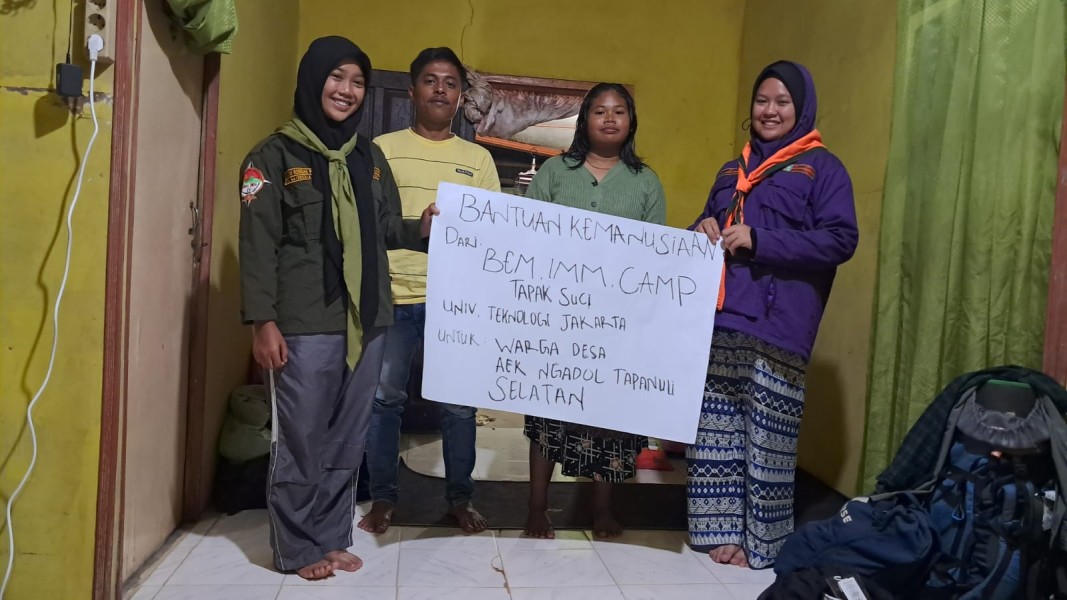 BANTUAN KEMANUSIAAN
DARI:
BEM. IMM. CAMP
TAPAK SUCI
UNIV. TEKNOLOGI JAKARTA
UNTUK: WARGA DESA
AEK NGADOL TAPANULI
SELATAN